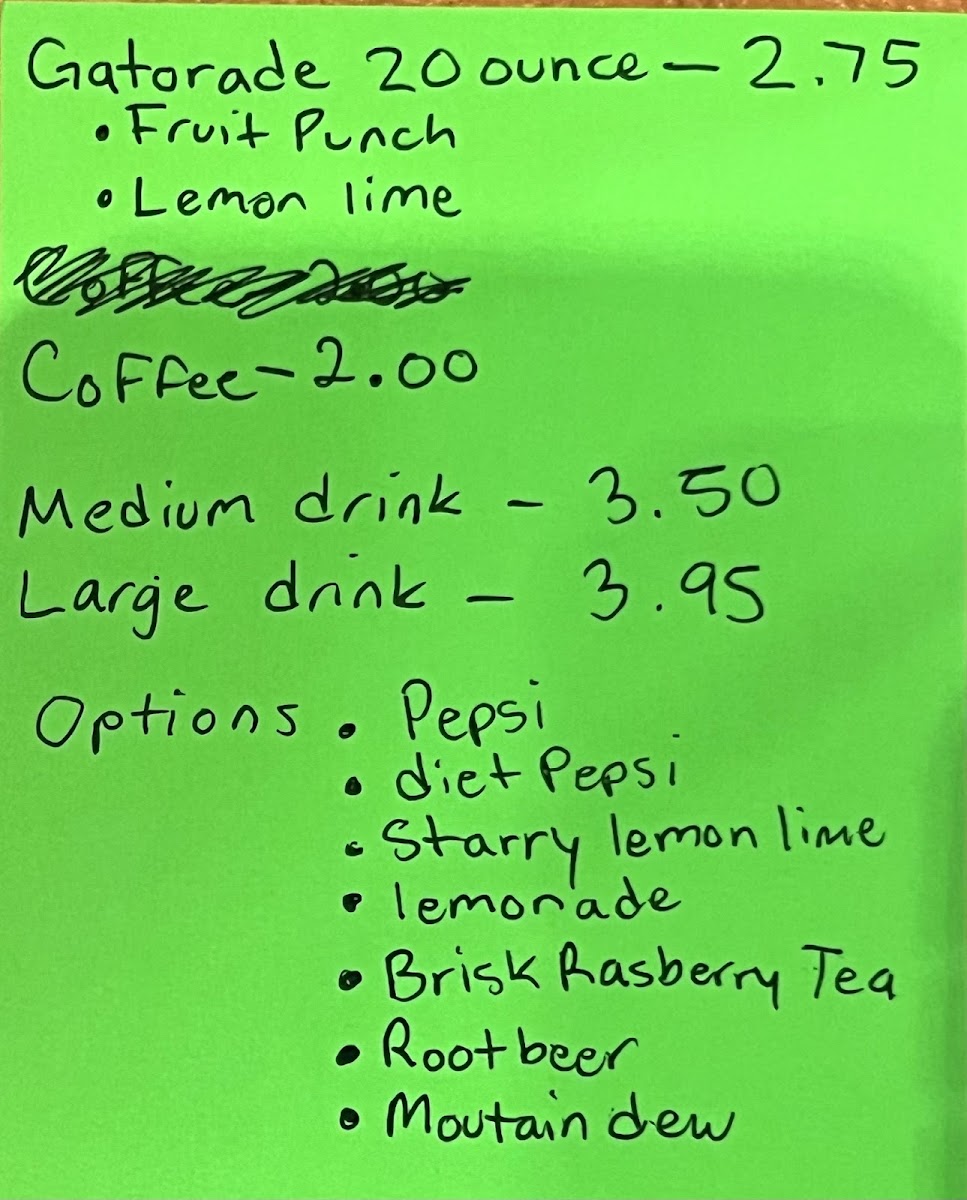 Gatorade 20 ounce - 2.75
• Fruit Punch
• Lemon lime
Coffee - 2.00
Medium drink - 3.50
Large drink - 3.95
Options • Pepsi
• diet Pepsi
• Starry lemon lime
• lemonade
• Brisk Rasberry Tea
• Root beer
• Moutain dew